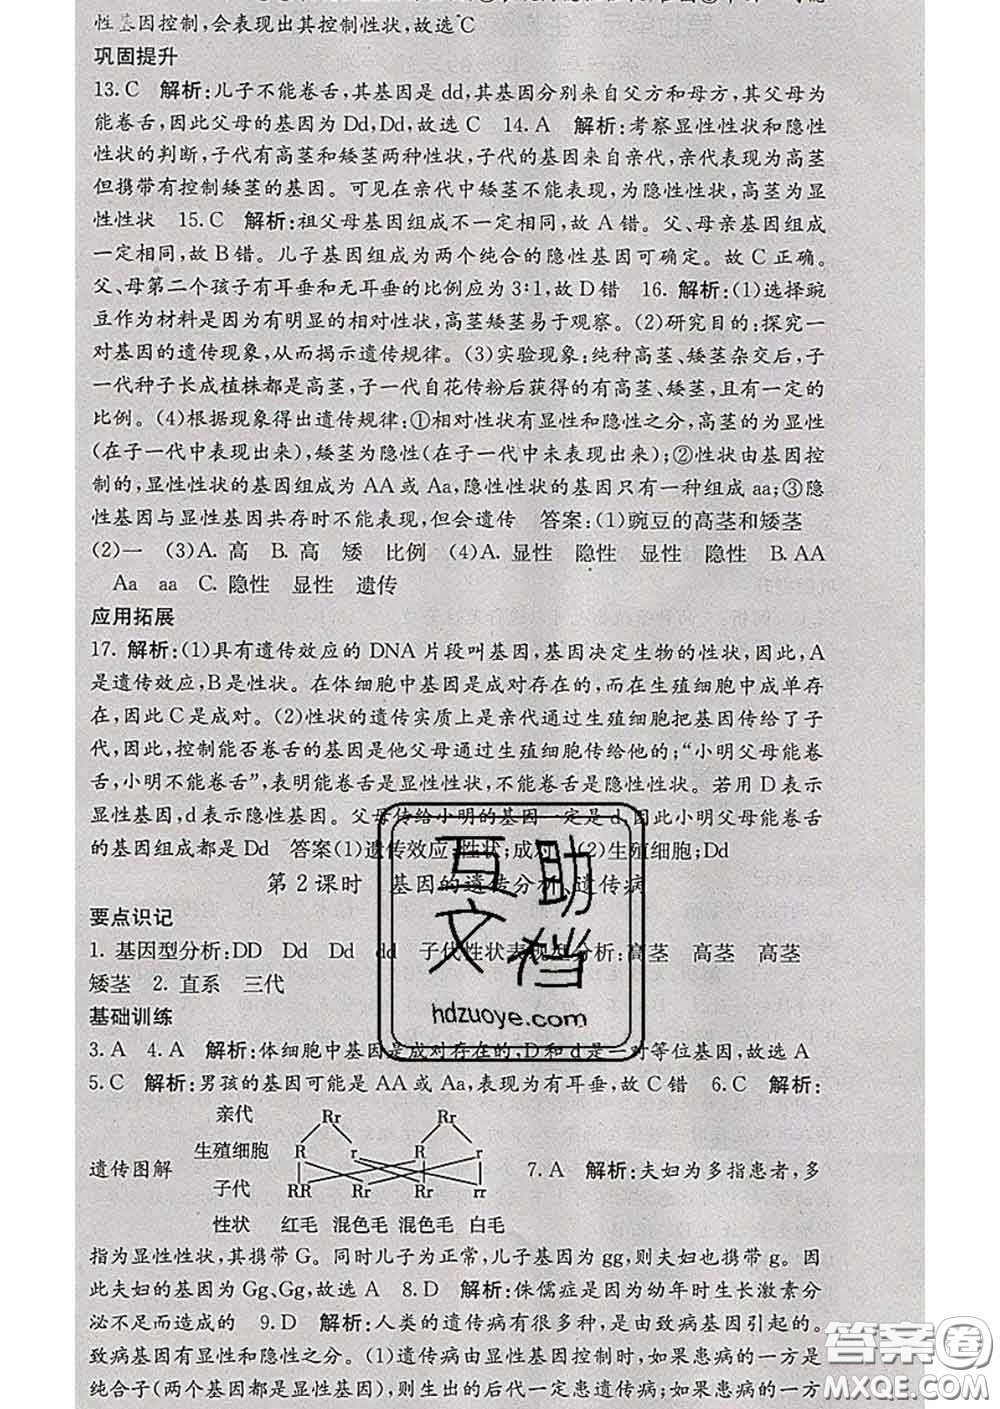 性基因控制,会表现出其控制性状,故选C
巩固提升
13.C 解析:儿子不能卷舌,其基因是 dd,其基因分别来自父方和母方,其父母为
能卷舌,因此父母的基因为 Dd,Dd,故选 C 14.A 解析:考察显性性状和隐性
性状的判断,子代有高茎和矮茎两种性状,子代的基因来自亲代,亲代表现为高茎
但携带有控制矮茎的基因。可见在亲代中矮茎不能表现,为隐性性状,高茎为显
性性状 15.C 解析:祖父母基因组成不一定相同,故 A 错。父、母亲基因组成
一定相同,故 B 错。儿子基因组成为两个纯合的隐性基因可确定。故 C 正确。
父、母第二个孩子有耳垂和无耳垂的比例应为 3:1,故 D 错 16. 解析:(1)选择豌
豆作为材料是因为有明显的相对性状,高茎矮茎易于观察。(2)研究目的:探究一
对基因的遗传现象,从而揭示遗传规律。(3)实验现象:纯种高茎、矮茎杂交后,子
一代种子长成植株都是高茎,子一代自花传粉后获得的有高茎、矮茎,且有一定的
比例。(4)根据现象得出遗传规律:①相对性状有显性和隐性之分,高茎的为显性
(在子一代中表现出来),矮茎为隐性(在子一代中未表现出来);②性状由基因控
制的,显性性状的基因组成为 AA 或 Aa,隐性性状的基因只有一种组成 aa;③隐
性基因与显性基因共存时不能表现,但会遗传 答案:(1)豌豆的高茎和矮茎
(2)一 (3)A. 高 B. 高 矮 比例 (4)A. 显性 隐性 显性 隐性 B. AA
Aa aa C. 隐性 显性 遗传
应用拓展
17. 解析:(1)具有遗传效应的 DNA 片段叫基因,基因决定生物的性状,因此,A
是遗传效应,B 是性状。在体细胞中基因是成对存在的,而在生殖细胞中成单存
在,因此 C 是成对。(2)性状的遗传实质上是亲代通过生殖细胞把基因传给了子
代,因此,控制能否卷舌的基因是他父母通过生殖细胞传给他的;“小明父母能卷
舌,小明不能卷舌”,表明能卷舌是显性性状,不能卷舌是隐性性状。若用 D 表示
显性基因,d 表示隐性基因。父母传给小明的基因一定是 d,因此小明父母能卷舌
的基因组成都是 Dd 答案(1)遗传效应;性状;成对 (2)生殖细胞;Dd
第 2 课时 基因的遗传分析、遗传病
要点识记
1. 基因型分析:DD Dd Dd dd 子代性状表现型分析:高茎 高茎 高茎
矮茎 2. 直系 三代
基础训练
3.A 4.A 解析:体细胞中基因是成对存在的,D 和 d 是一对等位基因,故选 A
5.C 解析:男孩的基因可能是 AA 或 Aa,表现为有耳垂,故 C 错 6.C 解析:
亲代 Rr Rr
生殖细胞 R r R r
遗传图解 7.A 解析:夫妇为多指患者,多
子代 RR Rr Rr rr
性状 红毛 混色毛 混色毛 白毛
指为显性性状,其携带 G。同时儿子为正常,儿子基因为 gg,则夫妇也携带 g。因
此夫妇的基因为 Gg、Gg,故选 A 8.D 解析:侏儒症是因为幼年时生长激素分
泌不足而造成的 9.D 解析:人类的遗传病有很多种,是由致病基因引起的。
致病基因有显性和隐性之分。(1)遗传病由显性基因控制时,如果患病的一方是
纯合子(两个基因都是显性基因),则生出的后代一定患遗传病;如果患病的一方
互助
文档
hdzuoye.com
答案圈
MXQE.COM